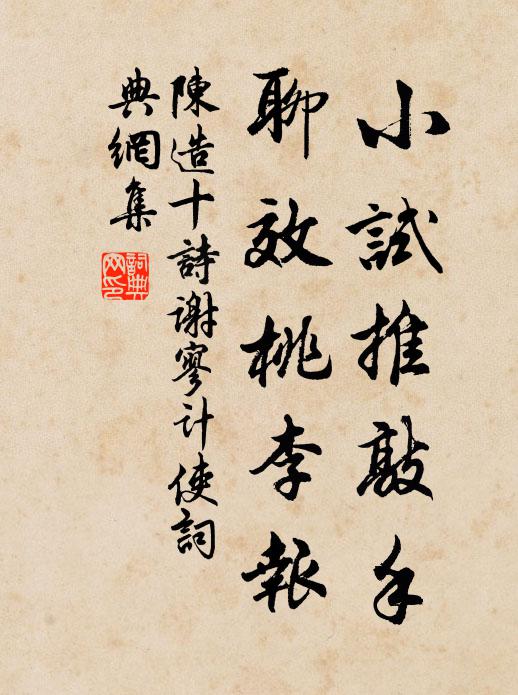 小試推敲手
聊效桃李報
陳造十詩謝寥計使詞
典網集
詞典網印